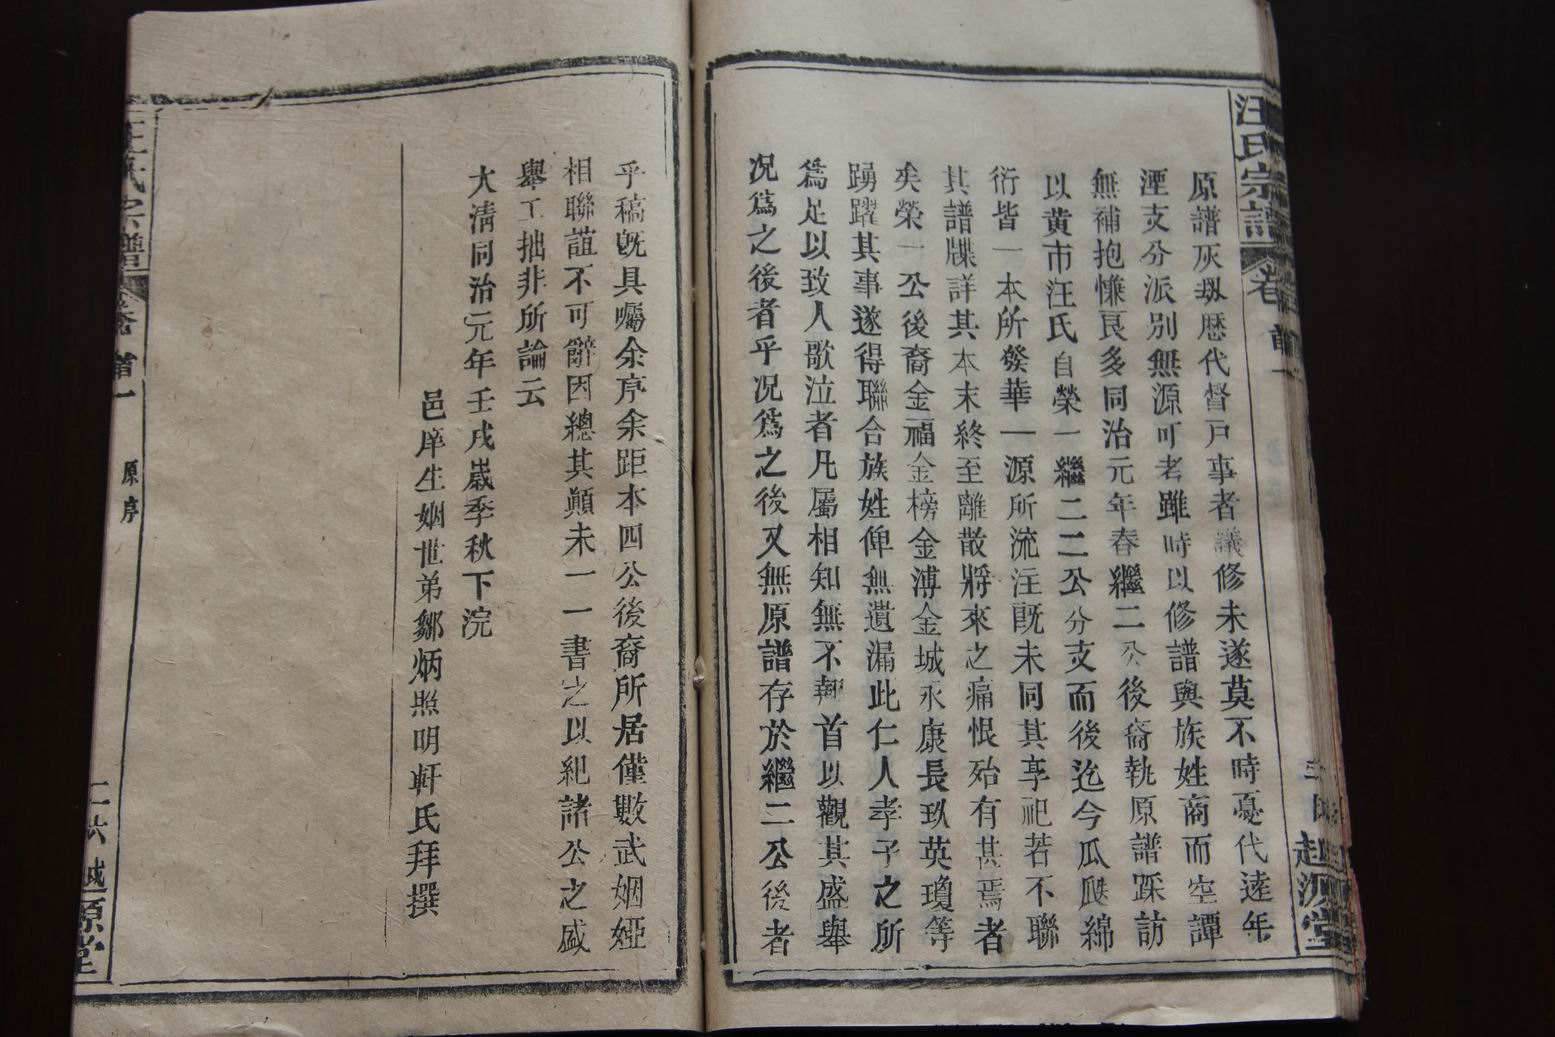 汪氏宗譜 卷首一
越源堂
原譜灰刼歷代督戸事者議修未遂莫不時憂代逺年
湮支分派別無源可考雖時以修譜與族姓商而空譚
無補抱慊良多同治元年春繼二公後裔執原譜踩訪
以黄市汪氏自榮一繼二二公分支而後迄今瓜瓞綿
衍皆一本所發華一源所流注旣未同其享祀若不聯
其譜牒詳其本末終至離散將來之痛恨殆有甚焉者
矣榮一公後裔金福金榜金溥金城永康長玖英瓊等
踴躍其事遂得聯合族姓俾無遺漏此仁人孝子之所
爲足以致人歌泣者凡屬相知無不翹首以觀其盛舉
况爲之後者乎况爲之後又無原譜存於繼二公後者
乎稿旣具囑余序余距本四公後裔所居僅數武姻婭
相聯誼不可辭因總其顛末一一書之以紀諸公之盛
舉工拙非所論云
大清同治元年壬戌歲季秋下浣
邑庠生姻世弟鄒炳照明軒氏拜撰
汪氏宗譜 卷首一 原序 二六 越源堂